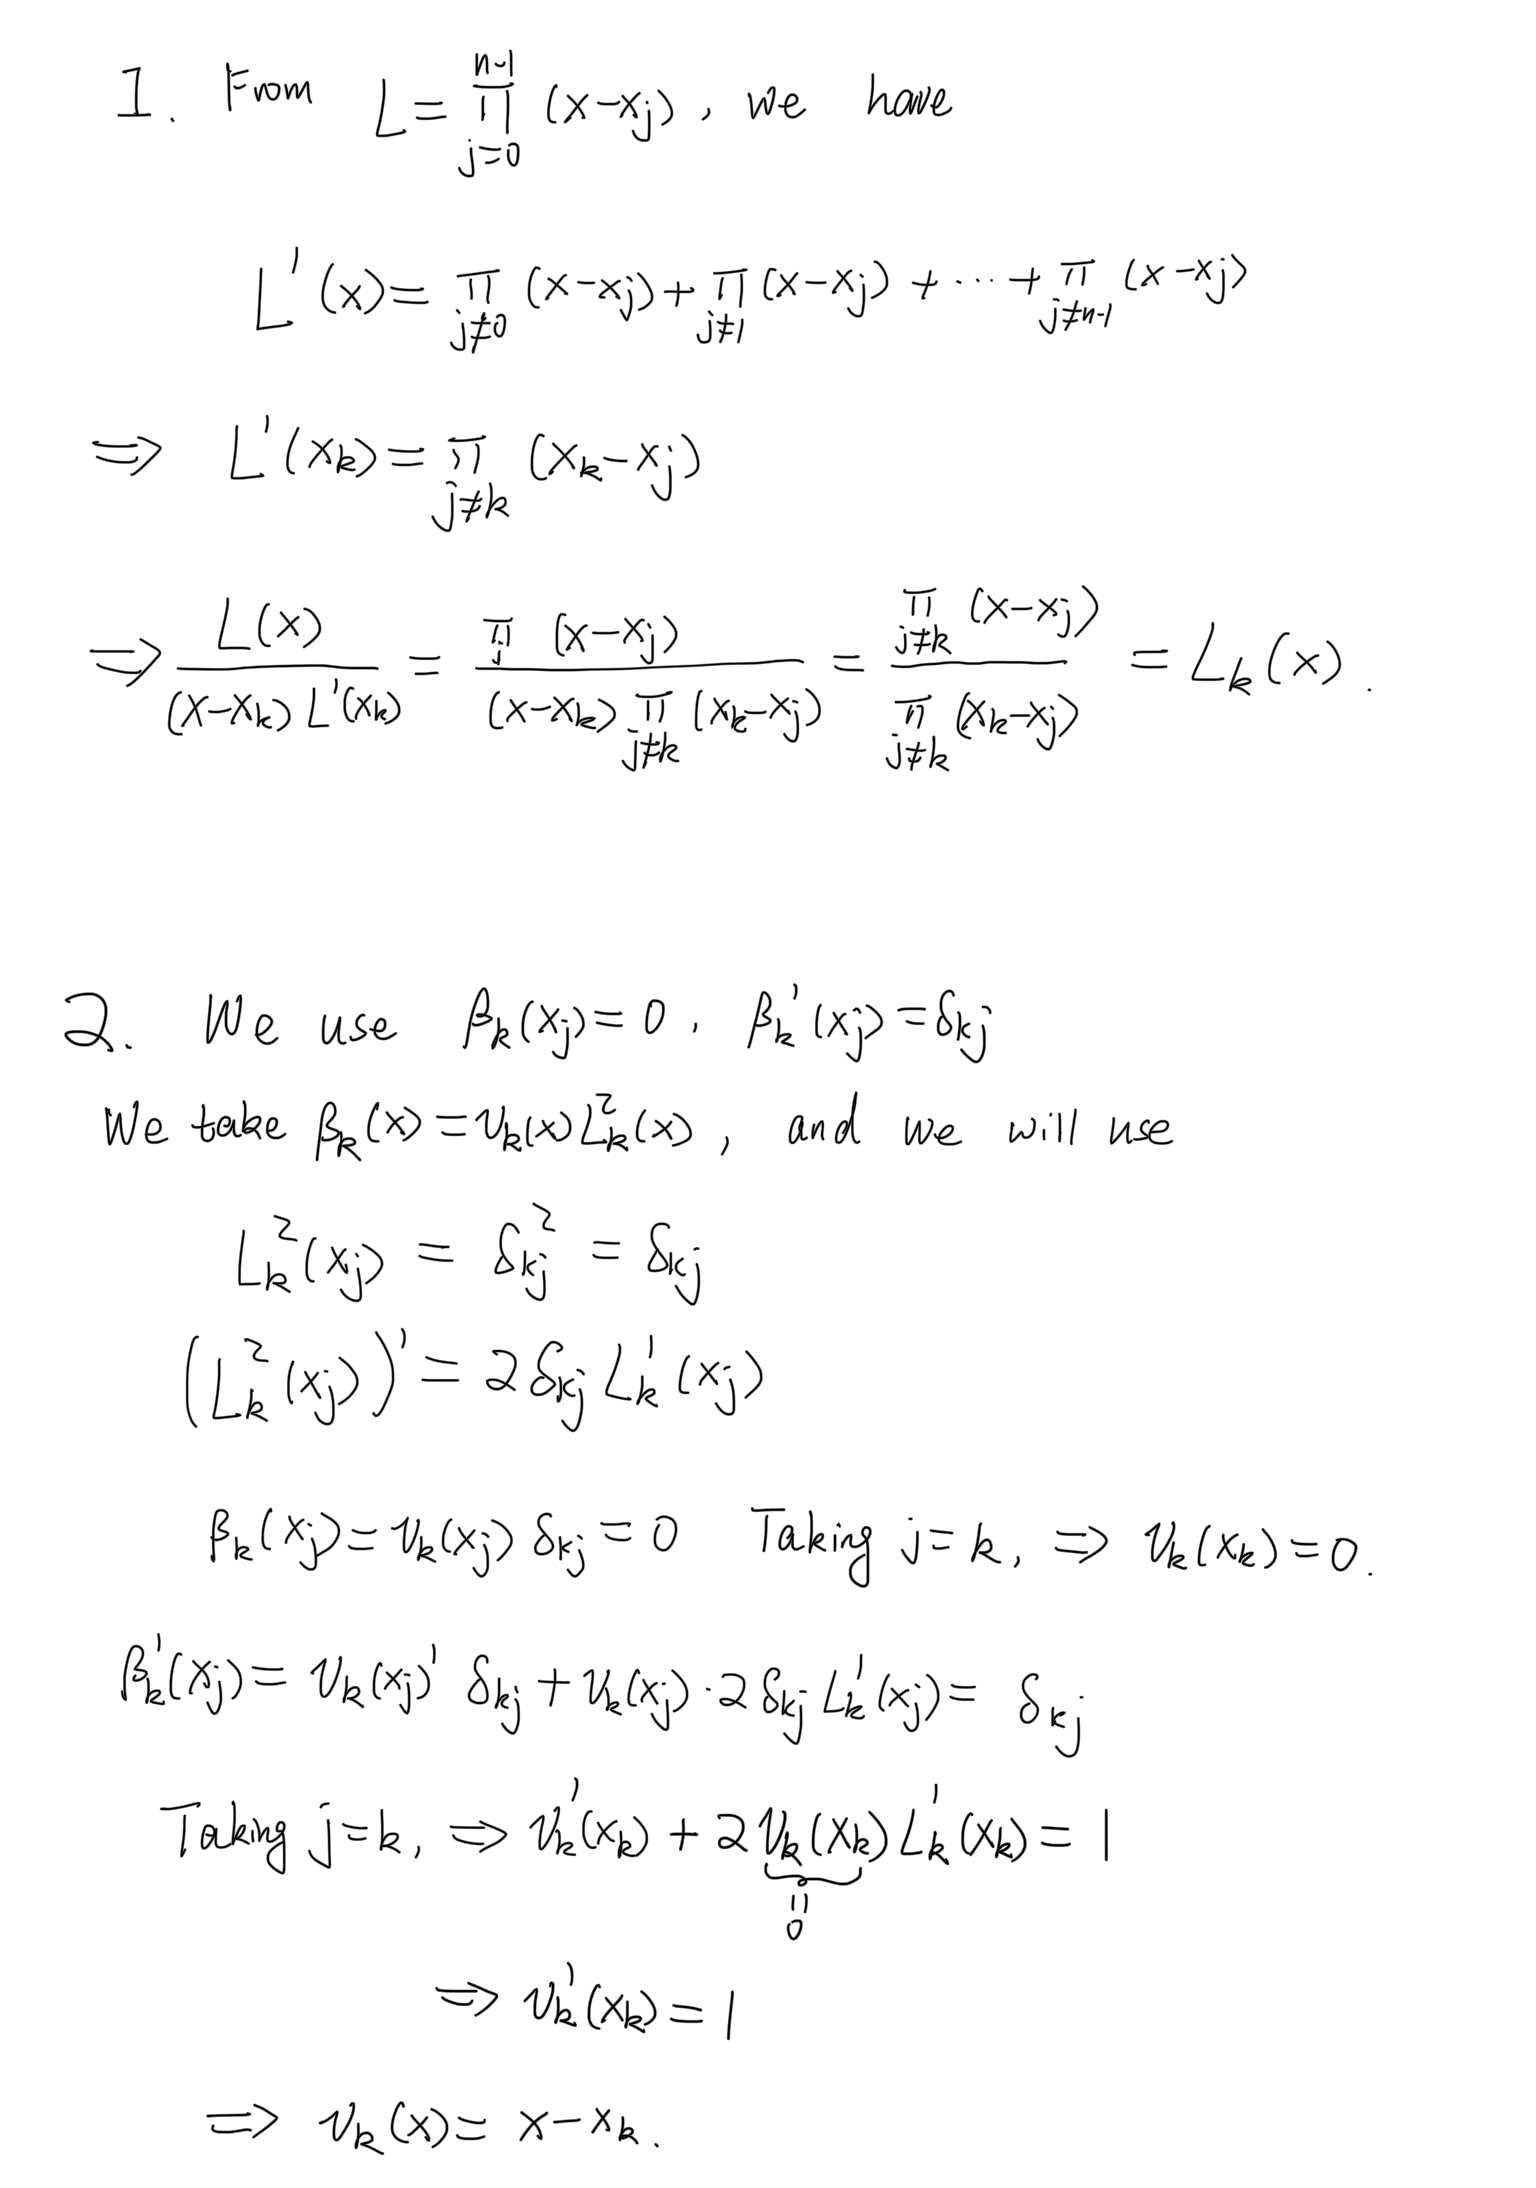 1. From L = ∏_{j=0}^{n-1} (x-x_j), we have
L'(x) = ∏_{j≠0} (x-x_j) + ∏_{j≠1} (x-x_j) + ··· + ∏_{j≠n-1} (x-x_j)
⇒ L'(x_k) = ∏_{j≠k} (x_k-x_j)
⇒ \frac{L(x)}{(x-x_k) L'(x_k)} = \frac{∏_j (x-x_j)}{(x-x_k) ∏_{j≠k} (x_k-x_j)} = \frac{∏_{j≠k} (x-x_j)}{∏_{j≠k} (x_k-x_j)} = L_k(x).
2. We use β_k(x_j) = 0, β_k'(x_j) = δ_{kj}
We take β_k(x) = v_k(x) L_k^2(x), and we will use
L_k^2(x_j) = δ_{kj}^2 = δ_{kj}
(L_k^2(x_j))' = 2 δ_{kj} L_k'(x_j)
β_k(x_j) = v_k(x_j) δ_{kj} = 0 Taking j=k, ⇒ v_k(x_k) = 0.
β_k'(x_j) = v_k(x_j)' δ_{kj} + v_k(x_j) · 2 δ_{kj} L_k'(x_j) = δ_{kj}
Taking j=k, ⇒ v_k'(x_k) + 2 \underbrace{v_k(x_k)}_{=0} L_k'(x_k) = 1
⇒ v_k'(x_k) = 1
⇒ v_k(x) = x - x_k.